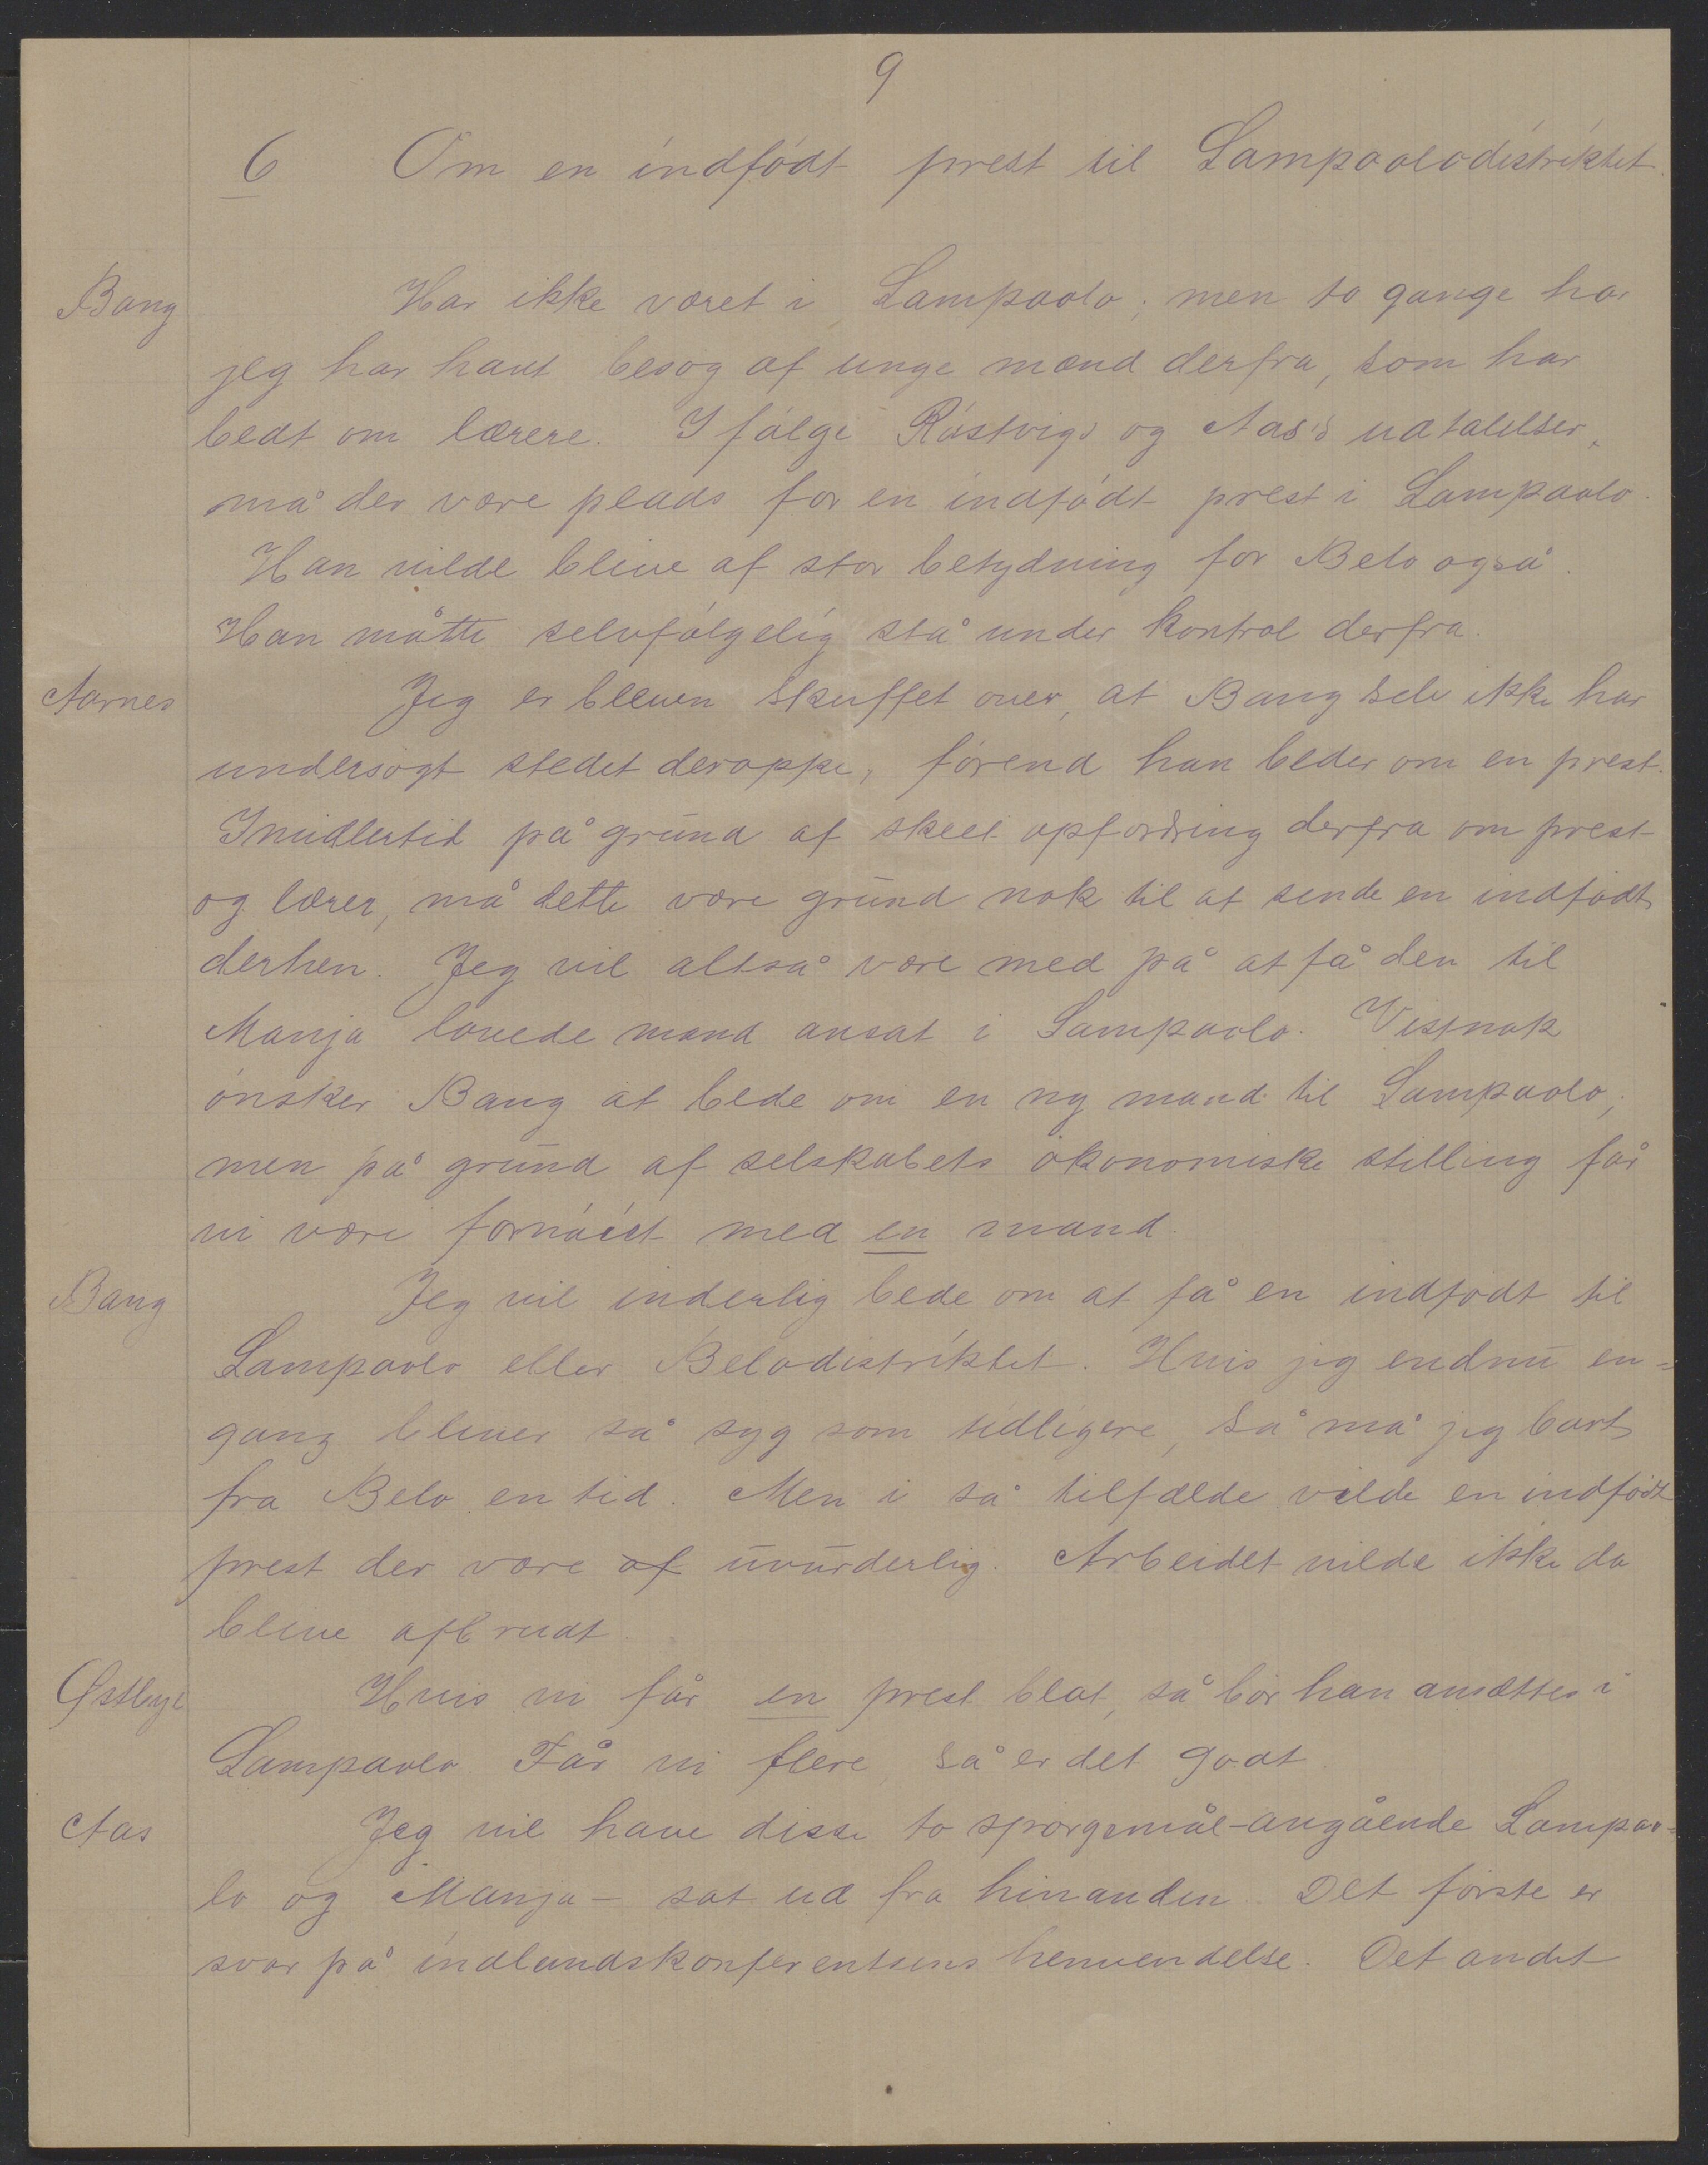 9
6 Om en indfødt prest til Lampaolodistriktet.
Bang Har ikke været i Lampaolo; men to gange har
jeg har havt besøg af unge mænd derfra, som har
bedt om lærere. Ifølge Røstvigs og Aas's udtalelser,
må der være plads for en indfødt prest i Lampaolo.
Han vilde blive af stor betydning for Belo også.
Han måtte selvfølgelig stå under kontrol derfra.
Aarnes Jeg er bleven skuffet over, at Bang selv ikke har
undersøgt stedet deroppe, førend han beder om en prest.
Imidlertid på grund af skeet opfordring derfra om prest
og lærer, må dette være grund nok til at sende en indfødt
derhen. Jeg vil altså være med på at få den til
Manja lovede mand ansat i Lampaolo. Vistnok
ønsker Bang at bede om en ny mand til Lampaolo;
men på grund af selskabets økonomiske stilling får
vi være fornøiet med en mand.
Bang Jeg vil inderlig bede om at få en indfødt til
Lampaolo eller Belodistriktet. Hvis jeg endnu en=
gang bliver så syg som tidligere, så må jeg bort
fra Belo en tid. Men i så tilfælde vilde en indfødt
prest der være af uvurderlig. Arbeidet vilde ikke da
blive afbrudt.
Østbye Hvis vi får en prest blot, så bør han ansættes i
Lampaolo. Får vi flere, så er det godt.
Aas Jeg vil have disse to spørgsmål - angående Lampao=
lo og Manja - sat ud fra hinanden. Det første er
svar på indlandskonferentsens henvendelse. Det andet